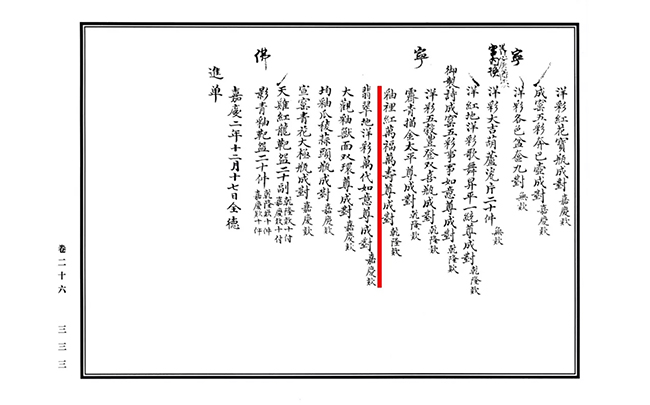 洋彩紅花寶瓶成對 嘉慶款
成窑五彩奔巴壺成對 嘉慶款
寧
洋彩各色
九對 無款
洋彩大吉葫蘆瓷片二十件 無款
洋紅地洋彩歌舞昇平一統尊成對 乾隆款
御製詩成窑五彩事事如意尊成對 乾隆款
洋彩五穀豐登双喜瓶成對 乾隆款
寧
霽青描金太平尊成對 乾隆款
釉裡紅萬福萬壽尊成對 乾隆款
翡翠地洋彩萬代如意尊成對 嘉慶款
大觀釉獸面双環尊成對 嘉慶款
均釉瓜稜蒜頭瓶成對 嘉慶款
宣窑青花大極瓶成對 嘉慶款
天雞紅龍靶盌二十副 乾隆款十付 嘉慶款十付
佛
影青釉靶盌二十件 乾隆款十件 嘉慶款十件
嘉慶二年十二月十七日全德
進單
卷二十六 三三三